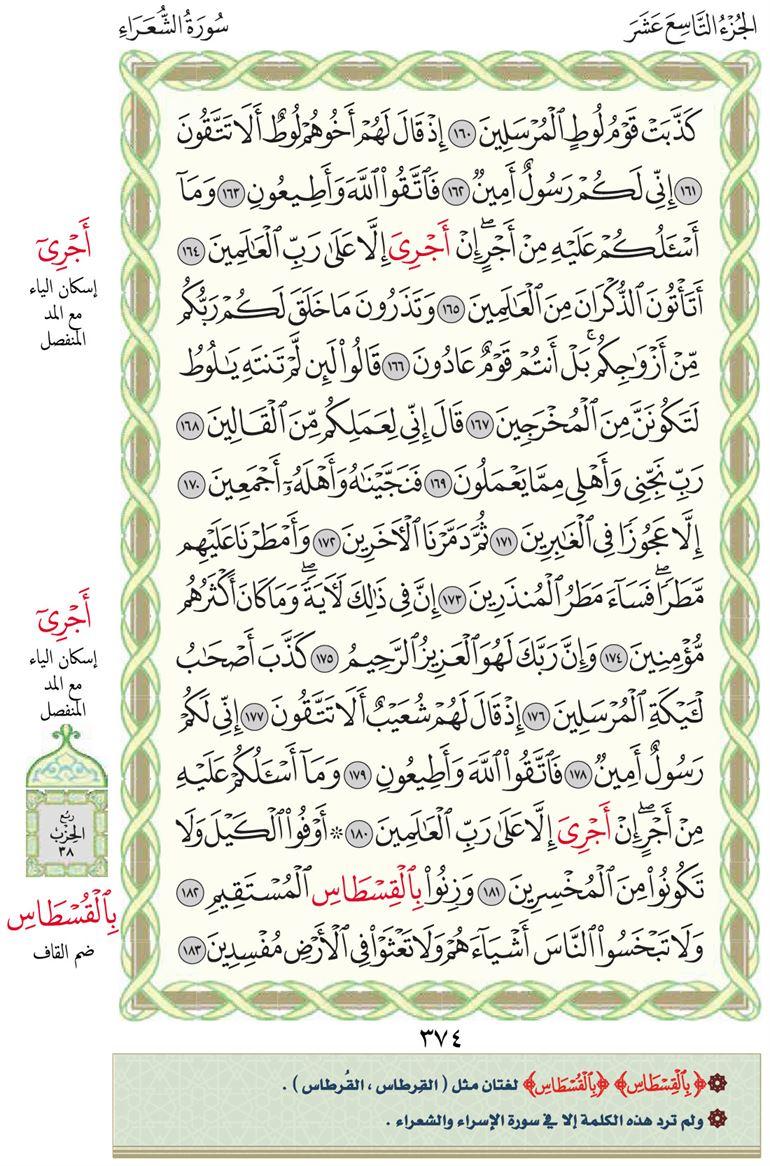 الجُزْءُ التَّاسِعَ عَشَرَ
سُورَةُ الشُّعَرَاءِ
كَذَّبَتْ قَوْمُ لُوطٍ ٱلْمُرْسَلِينَ ١٦٠ إِذْ قَالَ لَهُمْ أَخُوهُمْ لُوطٌ أَلَا تَتَّقُونَ
١٦١ إِنِّي لَكُمْ رَسُولٌ أَمِينٌ ١٦٢ فَٱتَّقُوا۟ ٱللَّهَ وَأَطِيعُونِ ١٦٣ وَمَآ
أَسْـَٔلُكُمْ عَلَيْهِ مِنْ أَجْرٍ ۖ إِنْ أَجْرِىَ إِلَّا عَلَىٰ رَبِّ ٱلْعَـٰلَمِينَ ١٦٤
أَتَأْتُونَ ٱلذُّكْرَانَ مِنَ ٱلْعَـٰلَمِينَ ١٦٥ وَتَذَرُونَ مَا خَلَقَ لَكُمْ رَبُّكُم
مِّنْ أَزْوَٰجِكُم ۚ بَلْ أَنتُمْ قَوْمٌ عَادُونَ ١٦٦ قَالُوا۟ لَئِن لَّمْ تَنتَهِ يَـٰلُوطُ
لَتَكُونَنَّ مِنَ ٱلْمُخْرَجِينَ ١٦٧ قَالَ إِنِّي لِعَمَلِكُم مِّنَ ٱلْقَالِينَ ١٦٨
رَبِّ نَجِّنِى وَأَهْلِى مِمَّا يَعْمَلُونَ ١٦٩ فَنَجَّيْنَـٰهُ وَأَهْلَهُۥٓ أَجْمَعِينَ ١٧٠
إِلَّا عَجُوزًا فِى ٱلْغَـٰبِرِينَ ١٧١ ثُمَّ دَمَّرْنَا ٱلْـَٔاخَرِينَ ١٧٢ وَأَمْطَرْنَا عَلَيْهِم
مَّطَرًا ۖ فَسَآءَ مَطَرُ ٱلْمُنذَرِينَ ١٧٣ إِنَّ فِى ذَٰلِكَ لَـَٔايَةً ۖ وَمَا كَانَ أَكْثَرُهُم
مُّؤْمِنِينَ ١٧٤ وَإِنَّ رَبَّكَ لَهُوَ ٱلْعَزِيزُ ٱلرَّحِيمُ ١٧٥ كَذَّبَ أَصْحَـٰبُ
لْـَٔيْكَةِ ٱلْمُرْسَلِينَ ١٧٦ إِذْ قَالَ لَهُمْ شُعَيْبٌ أَلَا تَتَّقُونَ ١٧٧ إِنِّي لَكُمْ
رَسُولٌ أَمِينٌ ١٧٨ فَٱتَّقُوا۟ ٱللَّهَ وَأَطِيعُونِ ١٧٩ وَمَآ أَسْـَٔلُكُمْ عَلَيْهِ
مِنْ أَجْرٍ ۖ إِنْ أَجْرِىَ إِلَّا عَلَىٰ رَبِّ ٱلْعَـٰلَمِينَ ١٨٠ ۞ أَوْفُوا۟ ٱلْكَيْلَ وَلَا
تَكُونُوا۟ مِنَ ٱلْمُخْسِرِينَ ١٨١ وَزِنُوا۟ بِٱلْقِسْطَاسِ ٱلْمُسْتَقِيمِ ١٨٢
وَلَا تَبْخَسُوا۟ ٱلنَّاسَ أَشْيَآءَهُمْ وَلَا تَعْثَوْا۟ فِى ٱلْأَرْضِ مُفْسِدِينَ ١٨٣
أَجْرِىٓ
إسكان الياء
مع المد
المنفصل
أَجْرِىٓ
إسكان الياء
مع المد
المنفصل
ربع
الحزب
٣٨
بِٱلْقُسْطَاسِ
ضم القاف
٣٧٤
﴿بِٱلْقِسْطَاسِ﴾ ﴿بِٱلْقُسْطَاسِ﴾ لغتان مثل ( القِرطاس ، القُرطاس ) .
ولم ترد هذه الكلمة إلا في سورة الإسراء والشعراء .